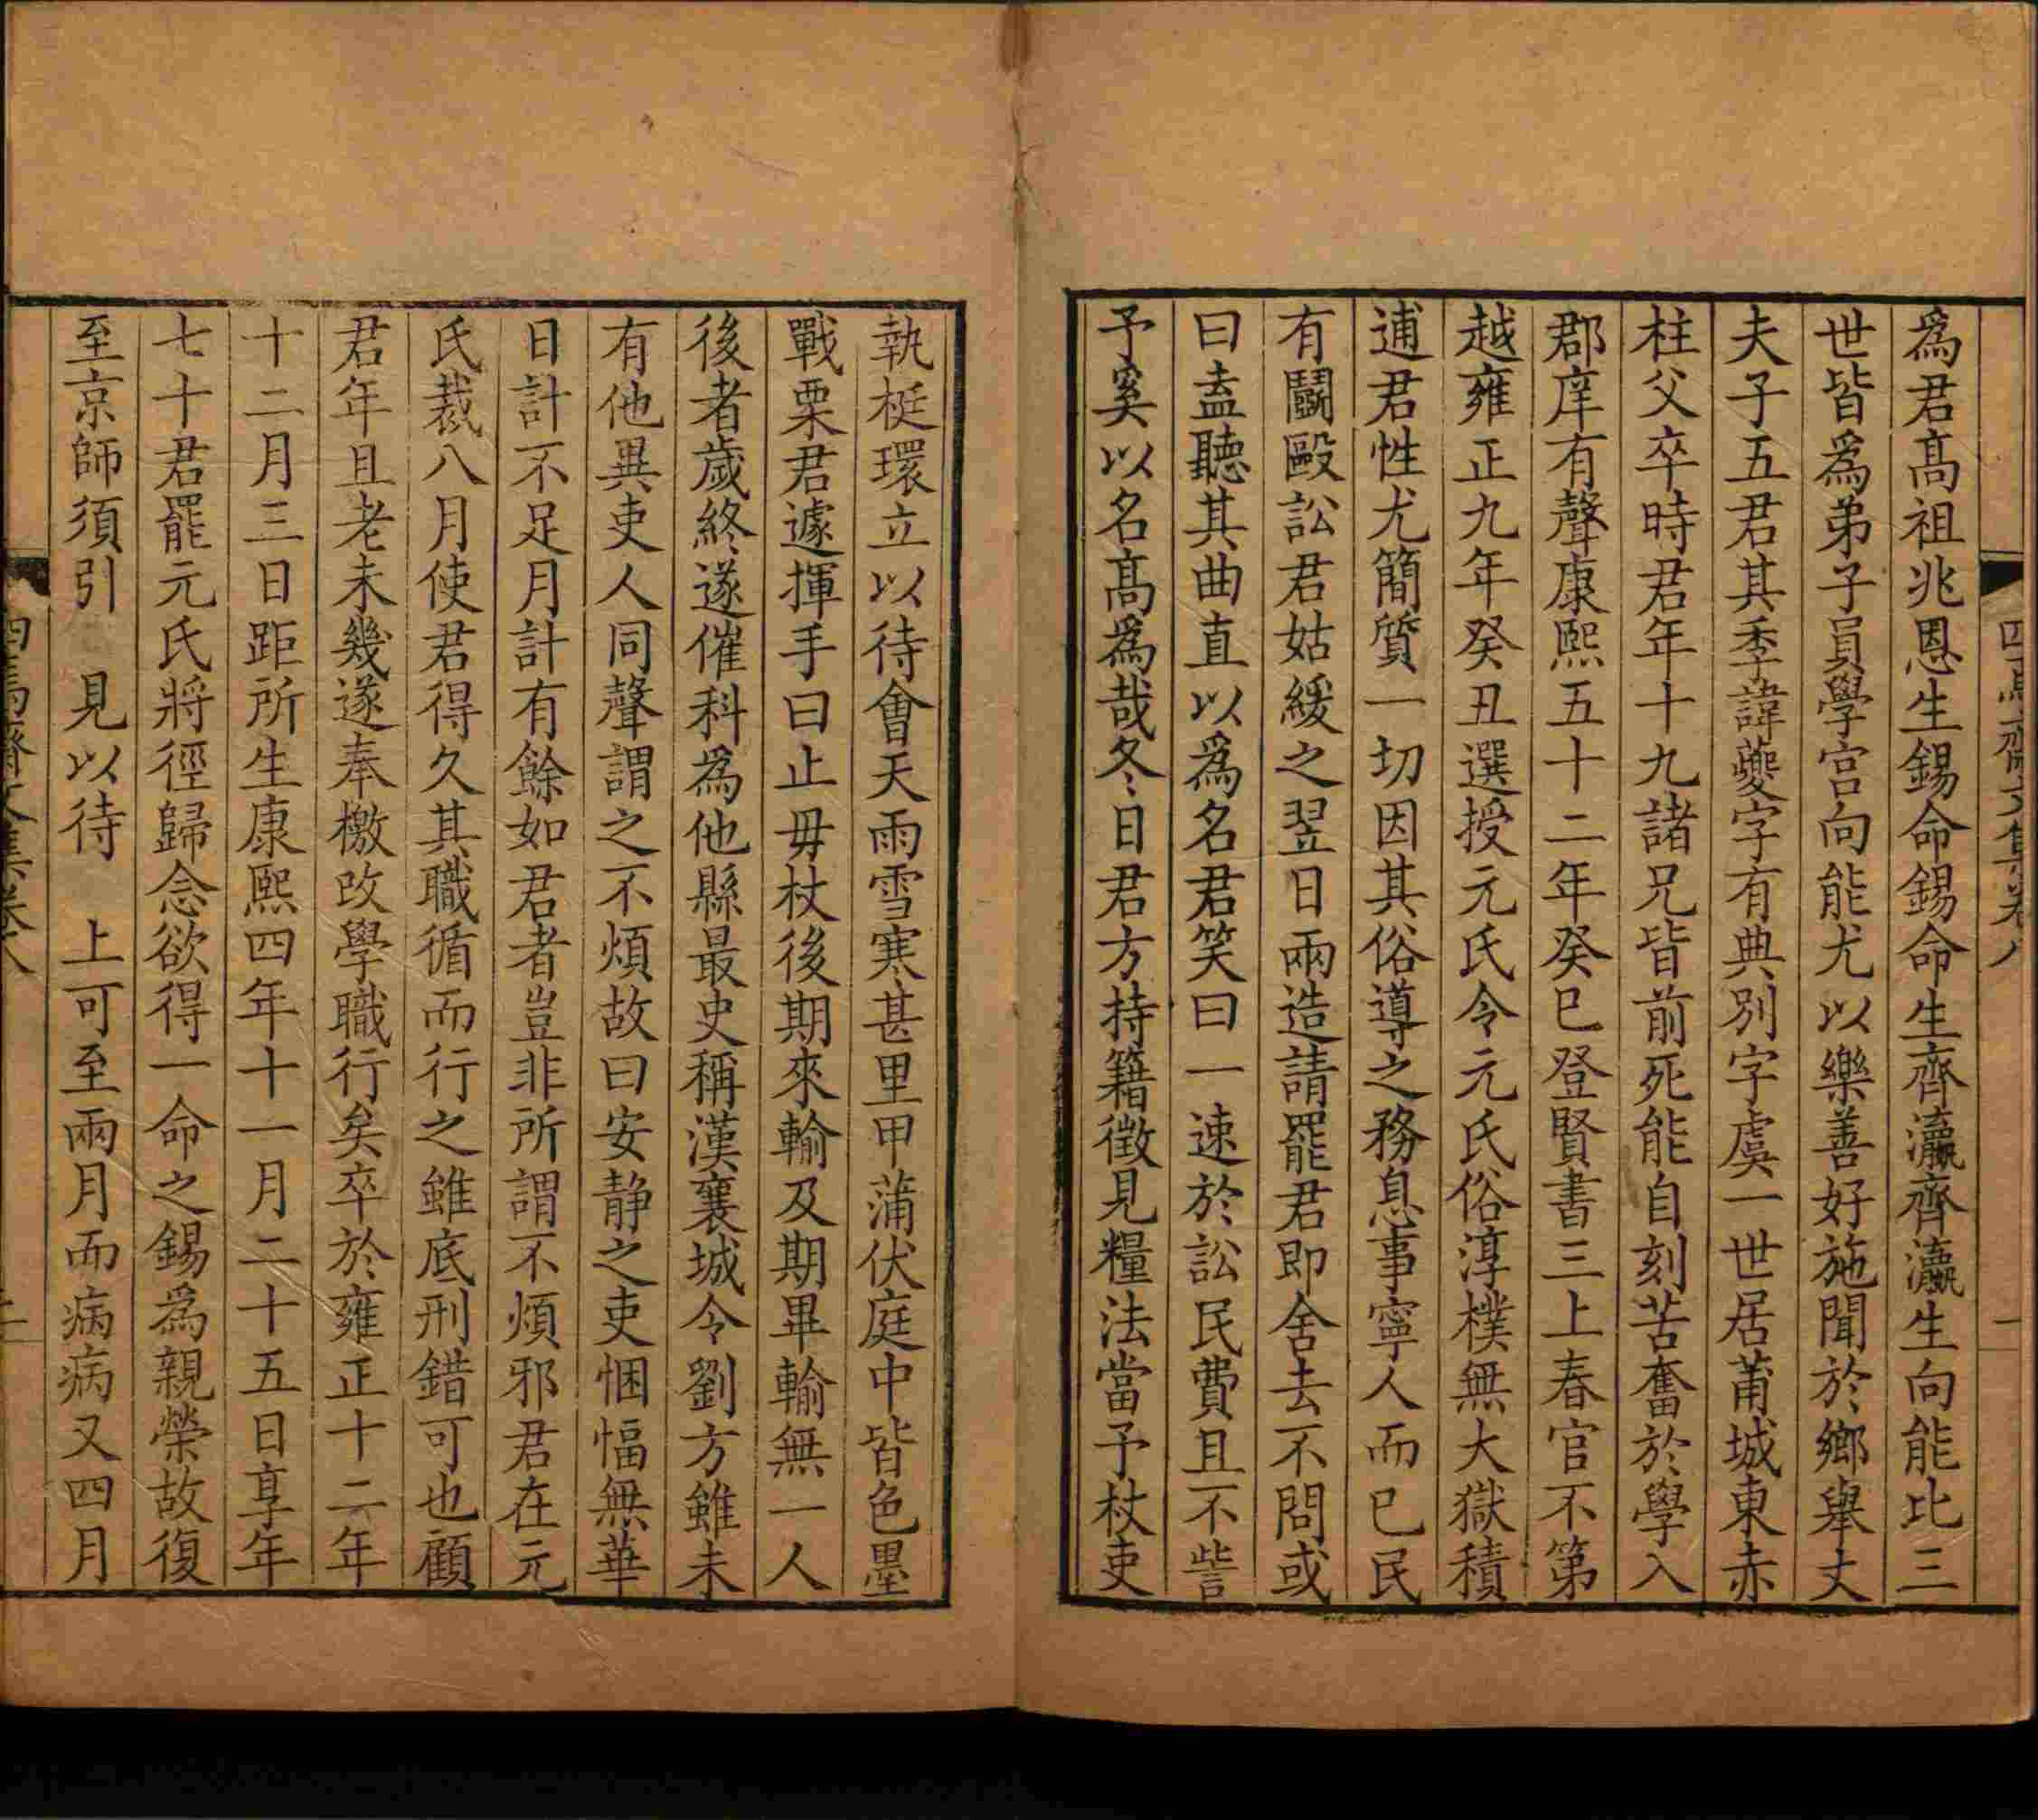 四焉齋文集卷八
一
為君髙祖兆恩生錫命錫命生齊瀛齊瀛生向能比三
世皆為弟子員學宫向能尤以樂善好施聞於鄉舉丈
夫子五君其季諱夔字有典别字虞一世居莆城東赤
柱父卒時君年十九諸兄皆前死能自刻苦奮於學入
郡庠有聲康熙五十二年癸巳登賢書三上春官不第
越雍正九年癸丑選授元氏令元氏俗淳樸無大獄積
逋君性尤簡質一切因其俗導之務息事寧人而已民
有鬭毆訟君姑緩之翌日兩造請罷君即舍去不問或
曰盍聽其曲直以為名君笑曰一速於訟民費且不訾
予奚以名髙為哉冬日君方持籍徵見糧法當予杖吏
執梃環立以待會天雨雪寒甚里甲蒲伏庭中皆色墨
戰栗君遽揮手曰止毋杖後期來輸及期畢輸無一人
後者歲終遂催科為他縣最史稱漢襄城令劉方雖未
有他異吏人同聲謂之不煩故曰安静之吏悃愊無華
日計不足月計有餘如君者豈非所謂不煩邪君在元
氏裁八月使君得久其職循而行之雖底刑錯可也顧
君年且老未幾遂奉檄改學職行矣卒於雍正十二年
十二月三日距所生康熙四年十一月二十五日享年
七十君罷元氏將徑歸念欲得一命之錫為親榮故復
至京師須引　見以待　上可至兩月而病病又四月
四焉齋文集卷八